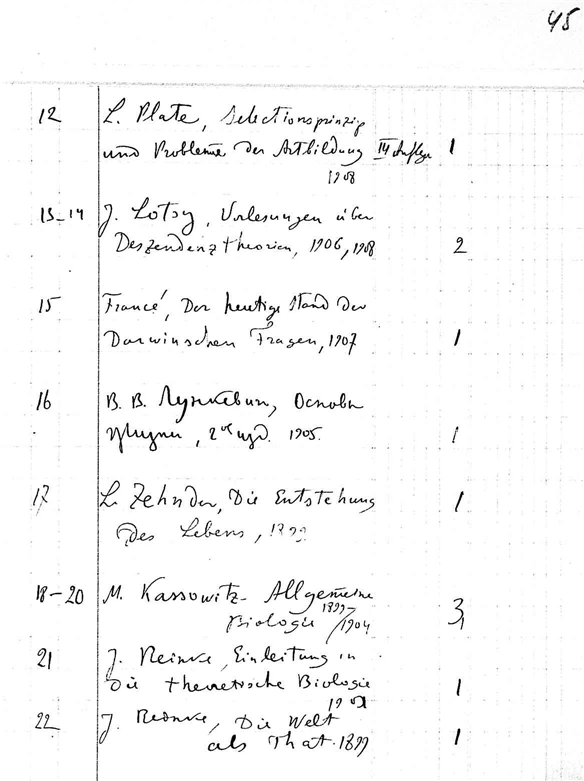 45
12 L. Plate, Selectionsprinzip
und Probleme der Artbildung III Auflage 1
1908
13-14 J. Lotsy, Vorlesungen über
Deszendenztheorien, 1906, 1908 2
15 Francé, Der heutige Stand der
Darwinschen Fragen, 1907 1
16 В. В. Лункевич, Основы
жизни, 2ое изд. 1905. 1
17 L. Zehnder, Die Entstehung 1
des Lebens, 1899
18-20 M. Kassowitz - Allgemeine
Biologie 1899/1904 3
21 J. Reinke, Einleitung in
die theoretische Biologie 1
22 J. Reinke, Die Welt
als That. 1899 1